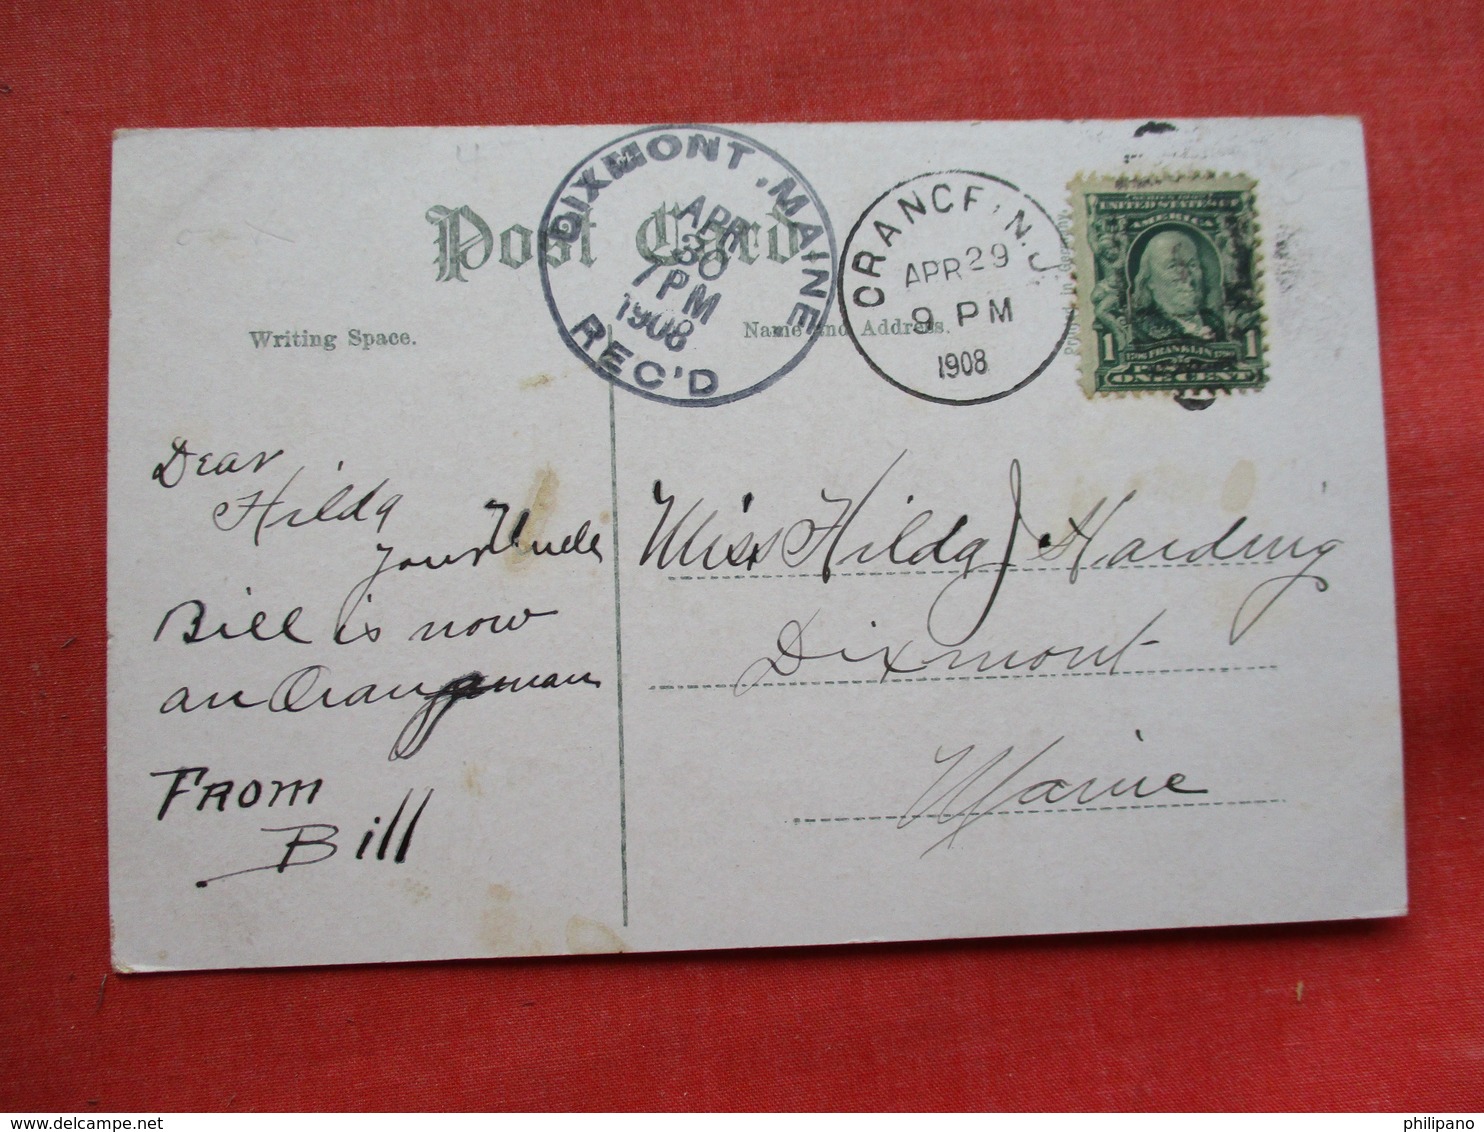 Post Card
DIXMONT, MAINE
APR
30
7 PM
1908
REC'D
CRANCF N.J
APR 29
9 PM
1908
UNITED STATES OF
AMERICA
1 FRANKLIN 1
ONE CENT
Printed in Germany.
Writing Space.
Name and Address.
Dear
Hilda
your Uncle
Bill is now
an Orangeman
FROM
Bill
Miss Hilda J Harding
Dixmont
Maine
philipano